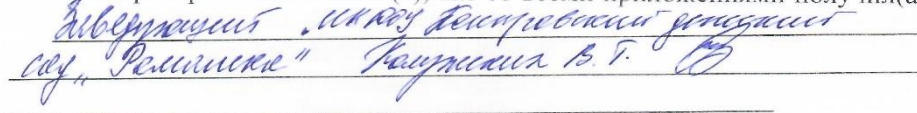 приложениями получил(а
Заведующий МККДУ Петровский детский
сад „Ромашка" В. Г.